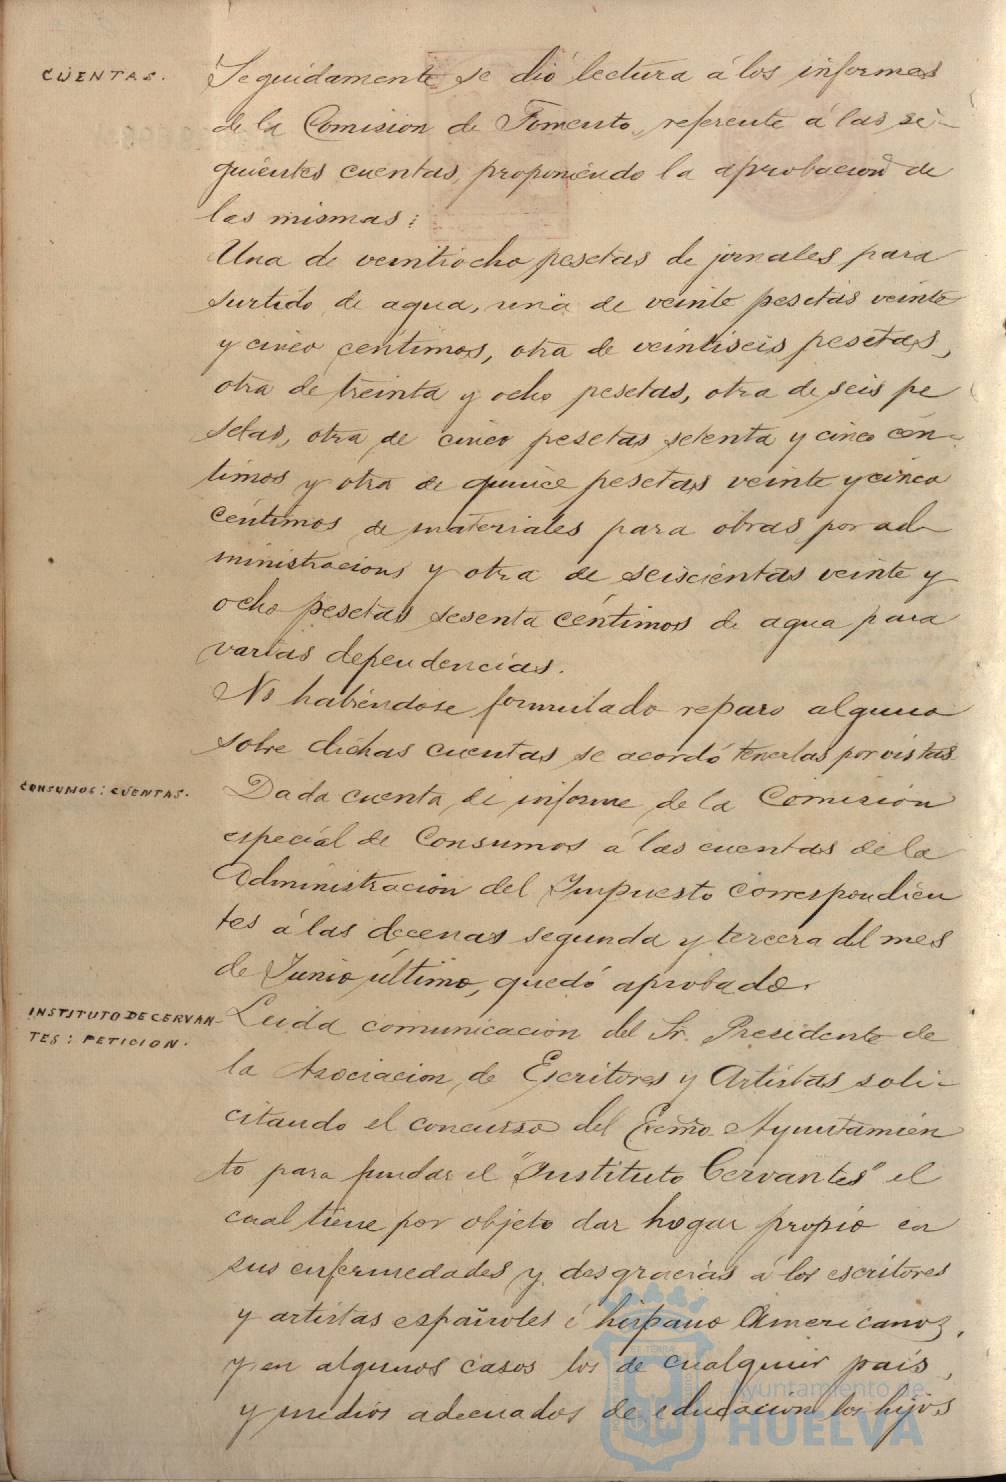 CUENTAS.
Seguidamente se dió lectura á los informes
de la Comision de Fomento, referente á las si-
guientes cuentas, proponiendo la aprobacion de
las mismas:
Una de veintiocho pesetas de jornales para
surtido de agua, una de veinte pesetas veinte
y cinco céntimos, otra de veintiseis pesetas,
otra de treinta y ocho pesetas, otra de seis pe
setas, otra de cinco pesetas setenta y cinco cén-
timos y otra de quince pesetas veinte y cinco
céntimos de materiales para obras por ad-
ministracion, y otra de seiscientas veinte y
ocho pesetas sesenta céntimos de agua para
varias dependencias.
No habiendose formulado reparo alguno
sobre dichas cuentas se acordó tenerlas por vistas
CONSUMOS: CUENTAS.
Dada cuenta de informe de la Comisión
especial de Consumos á las cuentas de la
Administración del Impuesto correspondien
tes á las decenas segunda y tercera del mes
de Junio último, quedó aprobado.
INSTITUTO DE CERVAN-
TES: PETICION.
Leida comunicacion del Sr. Presidente de
la Asociacion de Escritores y Artistas, soli-
citando el concurso del Excmo Ayuntamien
to para fundar el "Instituto Cervantes" el
cual tiene por objeto dar hogar propio en
sus enfermedades y desgracias á los escritores
y artistas españoles é hispano Americanos,
y en algunos casos los de cualquier país,
y medios adecuados de educacion los hijos
Ayuntamiento de
HUELVA